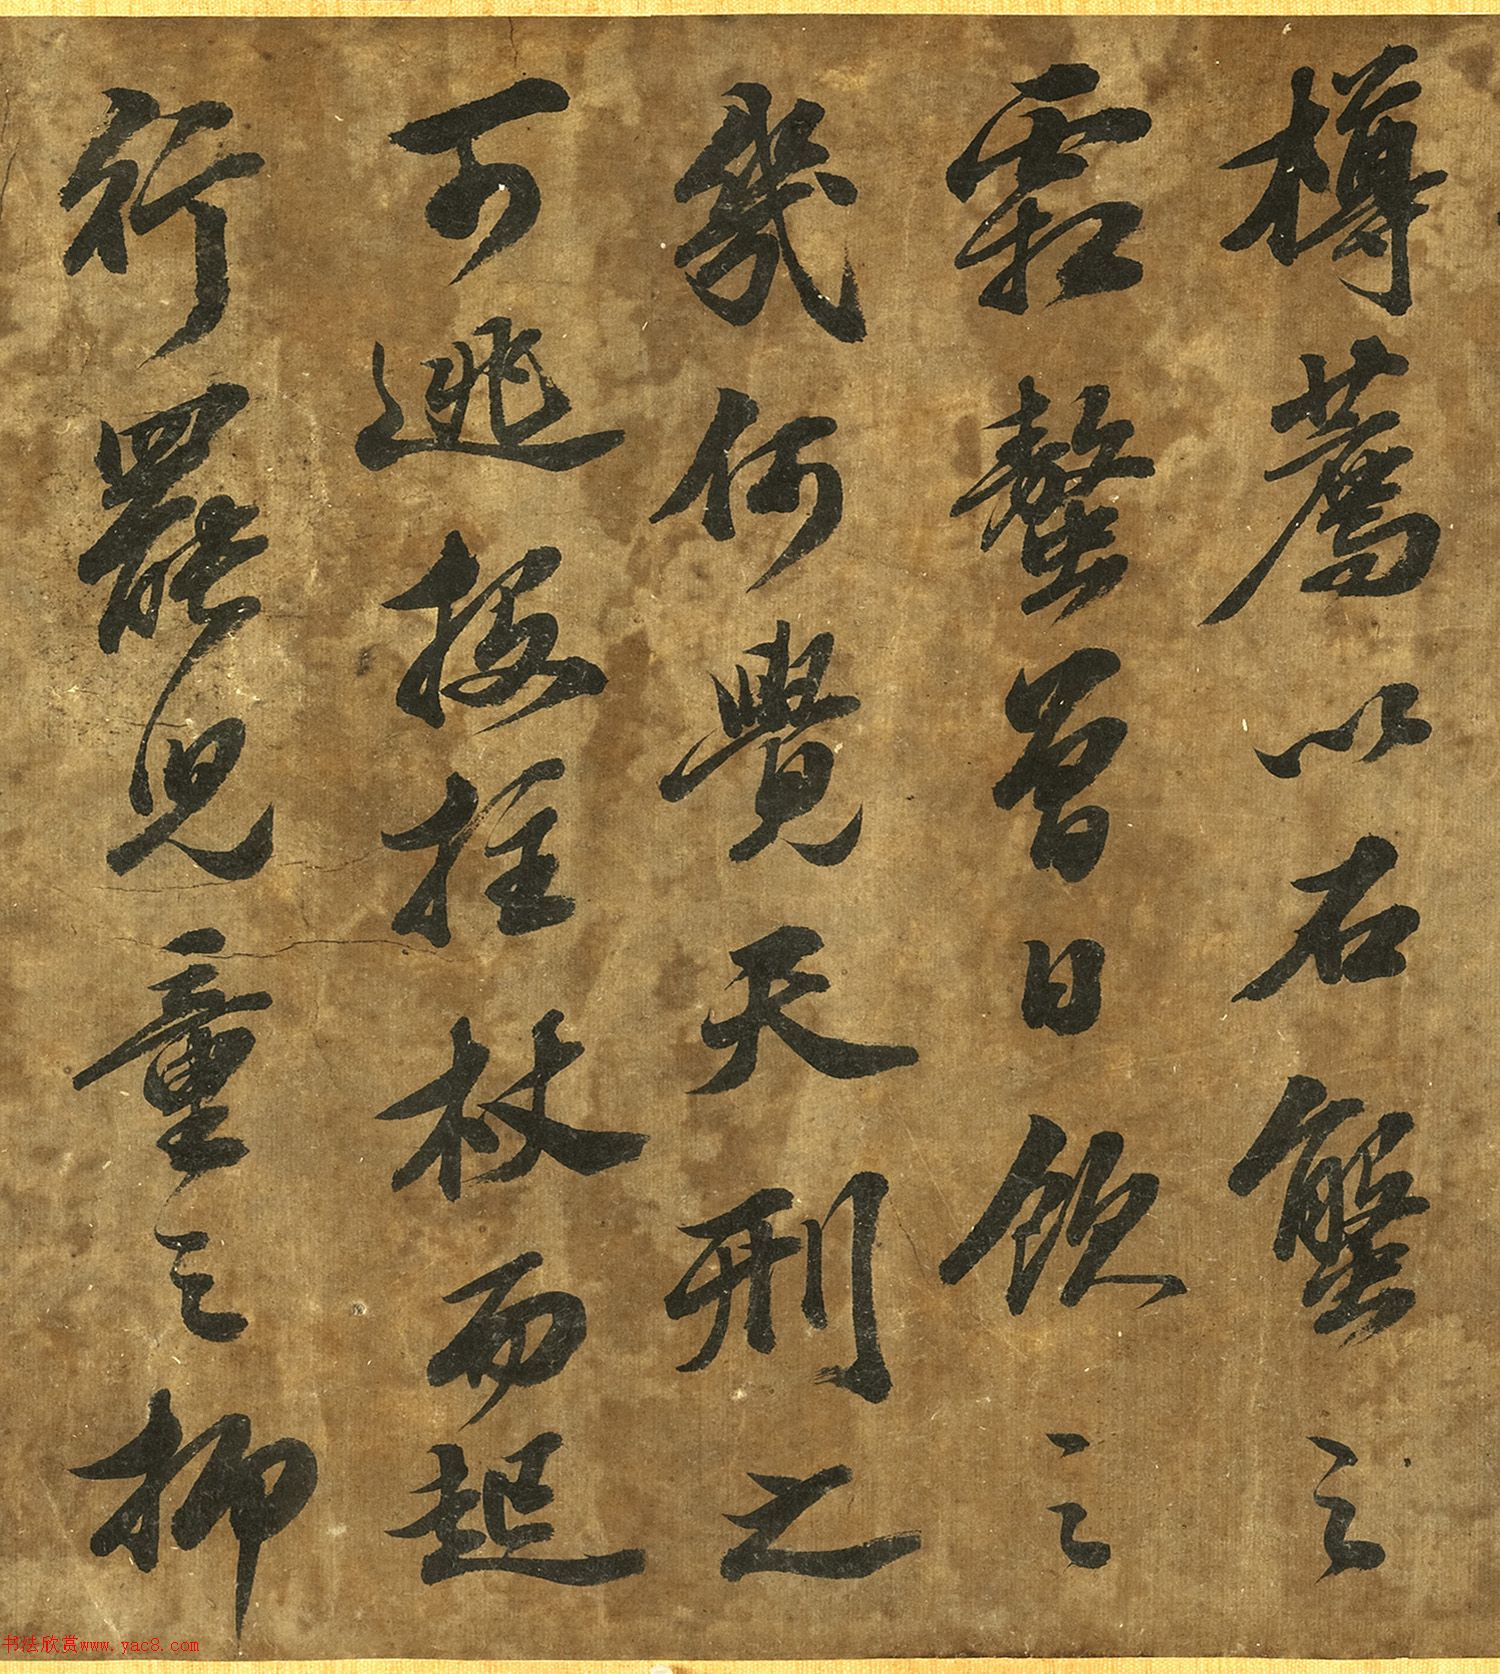 樽薦以石蟹之
霜螯曾日飲之
幾何覺天刑之
可逃投拄杖而起
行罷兒童之抑
书法欣赏www.yac8.com